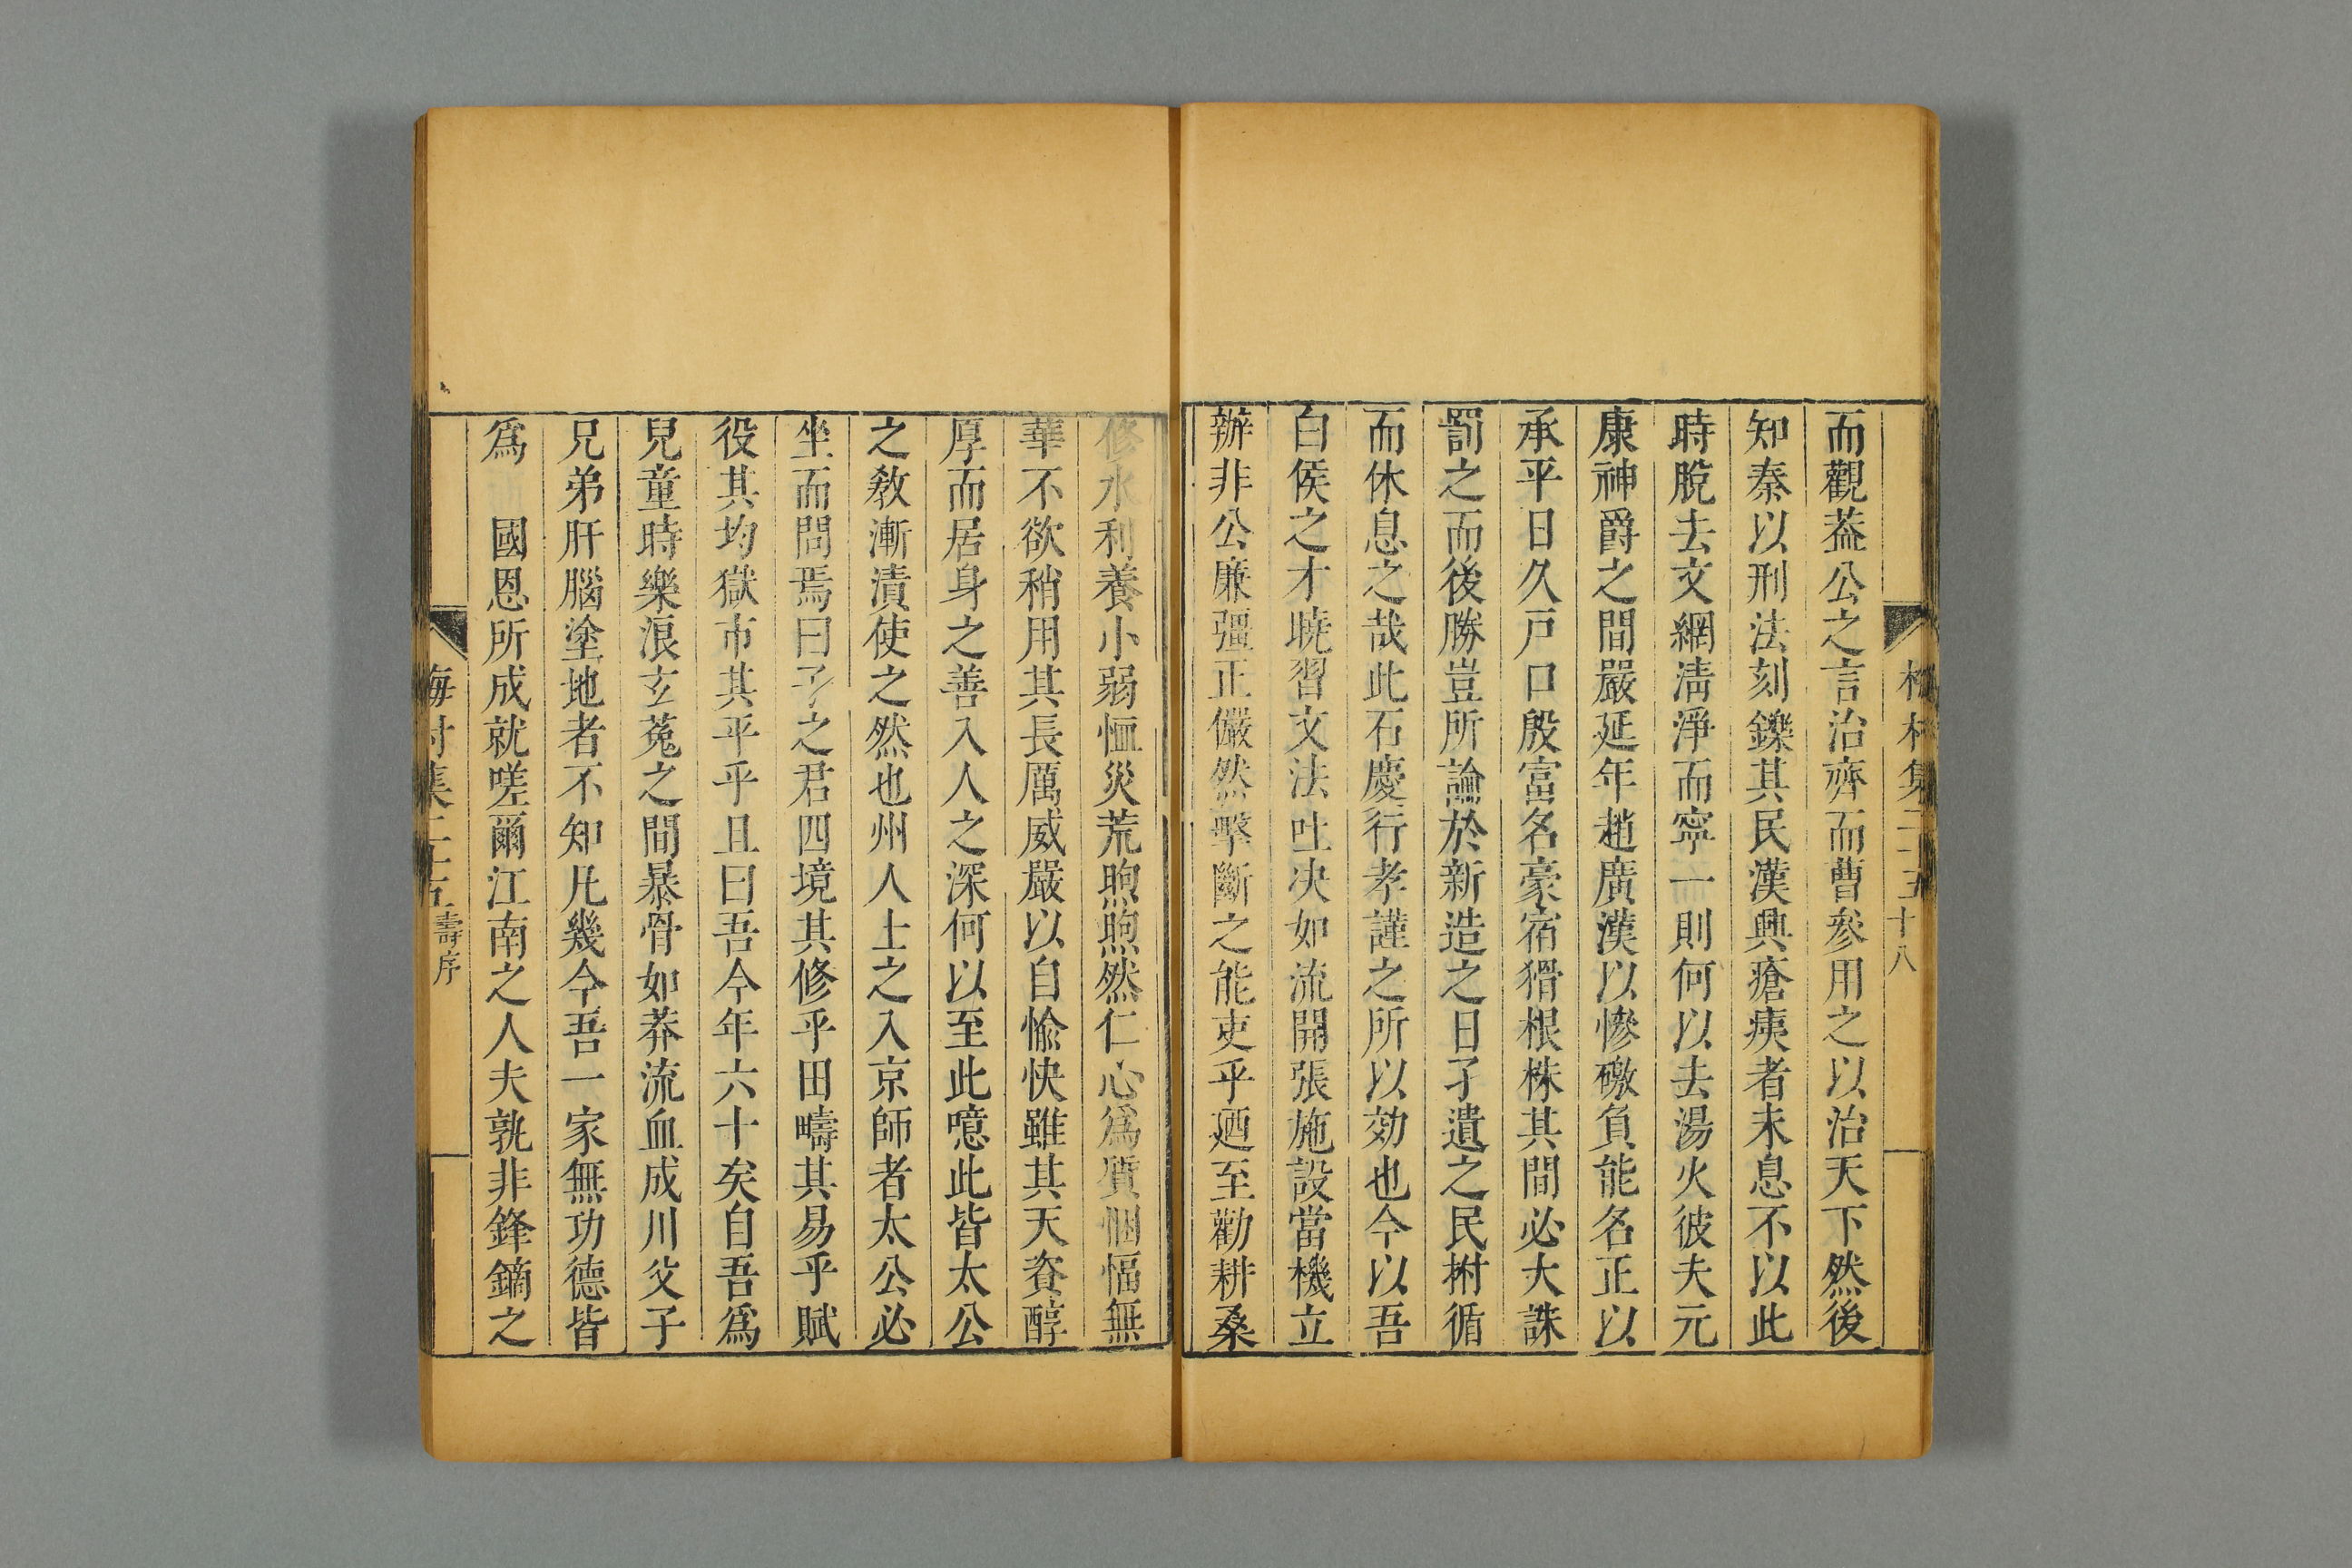 梅村集二十五 十八
而觀葢公之言治齊而曹參用之以治天下然後
知秦以刑法刻鑠其民漢興瘡痍者未息不以此
時脫去文網淸淨而寧一則何以去湯火彼夫元
康神爵之間嚴延年趙廣漢以慘礉負能名正以
承平日久戸口殷富名豪宿猾根株其間必大誅
罰之而後勝豈所論於新造之日孑遺之民拊循
而休息之哉此石慶行孝謹之所以効也今以吾
白侯之才曉習文法吐决如流開張施設當機立
辦非公廉彊正儼然擊斷之能吏乎廼至勸耕桑
修水利養小弱恤災荒煦煦然仁心爲質悃愊無
華不欲稍用其長厲威嚴以自愉快雖其天資醇
厚而居身之善入人之深何以至此噫此皆太公
之敎漸漬使之然也州人士之入京師者太公必
坐而問焉曰予之君四境其修乎田疇其易乎賦
役其均獄市其平乎且曰吾今年六十矣自吾爲
兒童時樂浪玄菟之間暴骨如莽流血成川父子
兄弟肝腦塗地者不知凡幾今吾一家無功德皆
爲 國恩所成就嗟爾江南之人夫孰非鋒鏑之
梅村集二十五 壽序